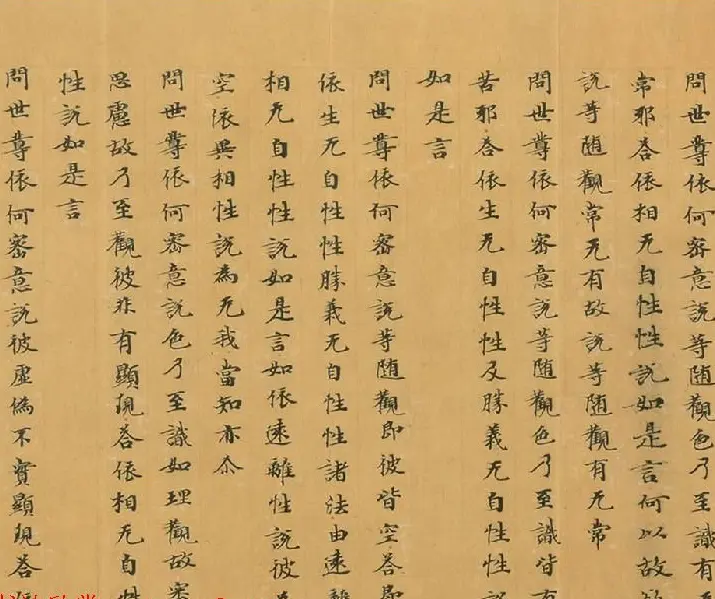 問世尊依何密意說等随觀色乃至識有
常邪荅依相无自性性說如是言何以故
說等随觀常无有故說等随觀有无常
問世尊依何密意說等随觀色乃至識皆有
苦邪荅依生无自性性及勝義无自性性
如是言
問世尊依何密意說等随觀即彼皆空荅即
依生无自性性勝義无自性性諸法由遠離
相无自性性說如是言如依遠離性說彼為
空依異相性說為无我當知亦尒
問世尊依何密意說色乃至識如理觀故審
思慮故乃至觀彼非有顯現荅依相无自性
性說如是言
問世尊依何密意說彼虛偽不實顯現荅